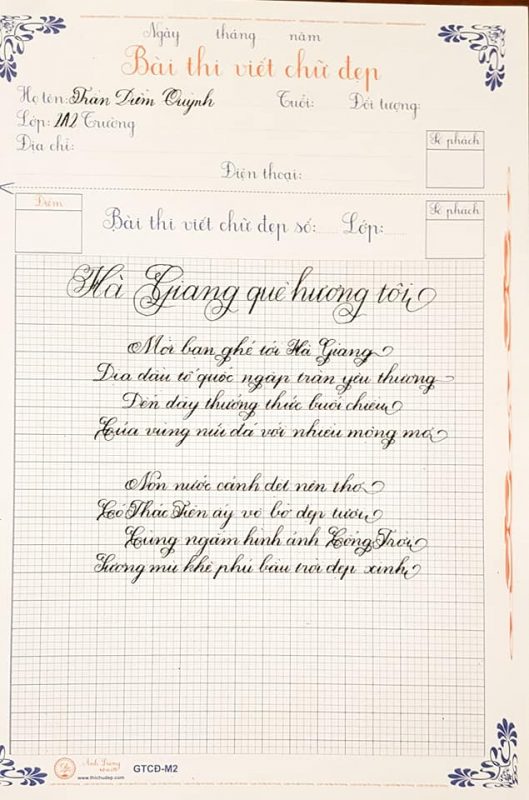 Ngày tháng năm
Bài thi viết chữ đẹp
Họ tên: Trần Diễm Quỳnh Tuổi: Đối tượng:
Lớp: 2A2 Trường
Địa chỉ:
Điện thoại:
Số phách
Điểm
Bài thi viết chữ đẹp số: Lớp:
Số phách
Hà Giang quê hương tôi
Mời bạn ghé tới Hà Giang
Địa đầu tổ quốc ngập tràn yêu thương
Đến đây thưởng thức buổi chiều
Của vùng núi đá với nhiều mộng mơ
Non nước cảnh dệt nên thơ
Có Thác Tiên ấy vô bờ đẹp tươi
Cùng ngắm hình ảnh Cổng Trời
Sương mù khẽ phủ bầu trời đẹp xinh
www.thichudep.com
GTCĐ-M2